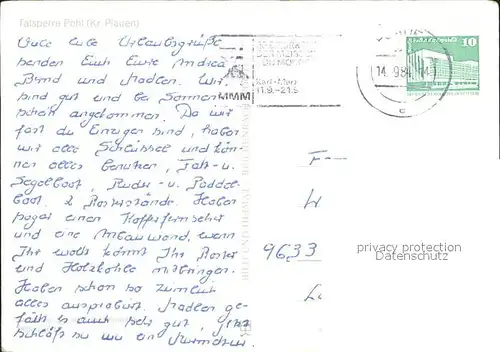 Talsperre Pöhl (Kr. Plauen)
Viele liebe Urlaubsgrüße
senden Euch Eure Andrea
Bernd und Madlen. Wir
sind gut und bei Sonnen-
schein angekommen. Da wir
fast die Einzigen sind, haben
wir alle Schlüssel und kön-
nen alles benutzen, Falt- u.
Segelboot, Ruder- u. Paddel-
boot. 2 Rosterstände. Haben
sogar einen Kofferfernseher
und eine Anbauwand, wenn
Ihr wollt könnt Ihr Roster
und Holzkohle mitbringen.
Haben schon so ziemlich
alles ausprobiert. Madlen ge-
fällt es auch sehr gut, jetzt
schläft sie wie ein Murmeltier.
MMM
Karl-Marx-
11.9.–21.9.
14.9.84
10
9633
privacy protection
Datenschutz